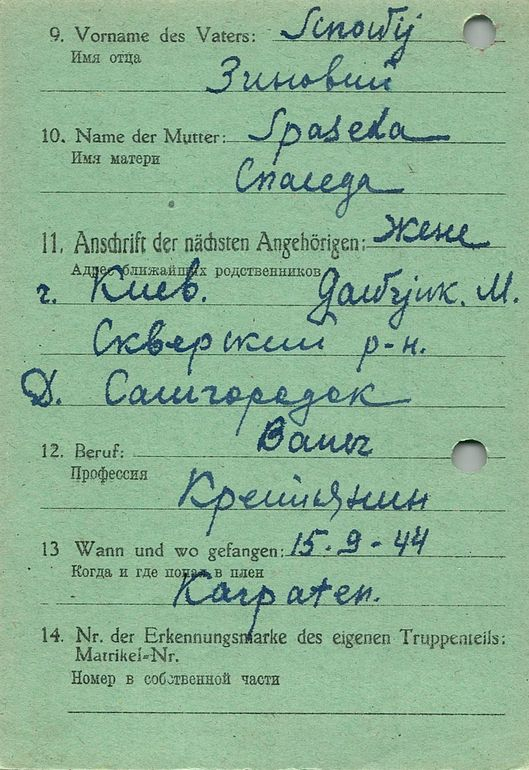 9. Vorname des Vaters: Sinowij
Имя отца
Зиновий
10. Name der Mutter: Spaseda
Имя матери
Спаседа
11. Anschrift der nächsten Angehörigen: Жене
Адрес ближайших родственников
г. Киев. М.
Скверский р-н.
Д. Самгородок
12. Beruf: Bauer
Профессия
Крестьянин
13 Wann und wo gefangen: 15-9-44
Когда и где попал в плен
Karpaten.
14. Nr. der Erkennungsmarke des eigenen Truppenteils:
Matrikel-Nr.
Номер в собственной части